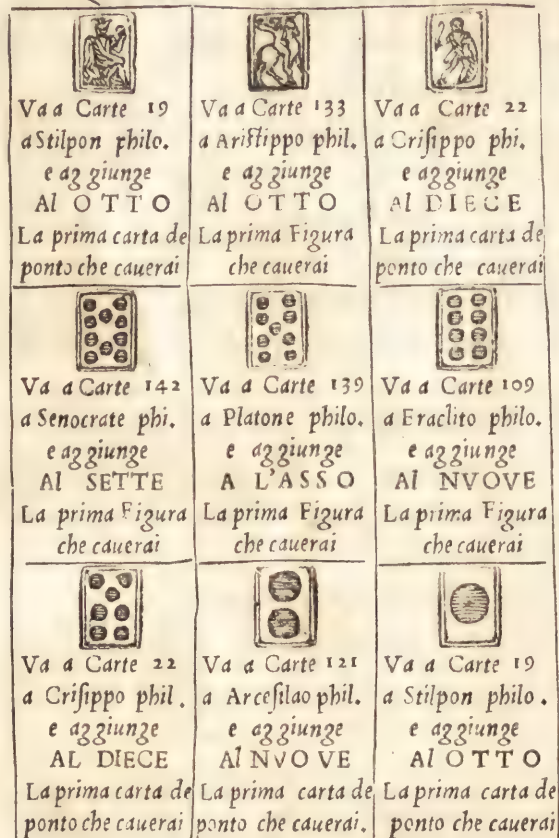 Va a Carte 19
a Stilpon philo.
e aggiunge
Al OTTO
La prima carta de
ponto che cauerai
Va a Carte 133
a Aristippo phil.
e aggiunge
Al OTTO
La prima Figura
che cauerai
Va a Carte 22
a Crisippo phi.
e aggiunge
Al DIECE
La prima carta de
ponto che cauerai
Va a Carte 142
a Senocrate phi.
e aggiunge
Al SETTE
La prima Figura
che cauerai
Va a Carte 139
a Platone philo.
e aggiunge
A L'ASSO
La prima Figura
che cauerai
Va a Carte 109
a Eraclito philo.
e aggiunge
Al NVOVE
La prima Figura
che cauerai
Va a Carte 22
a Crisippo phil.
e aggiunge
AL DIECE
La prima carta de
ponto che cauerai
Va a Carte 121
a Arcesilao phil.
e aggiunge
Al NVOVE
La prima carta de
ponto che cauerai.
Va a Carte 19
a Stilpon philo.
e aggiunge
Al OTTO
La prima carta de
ponto che cauerai